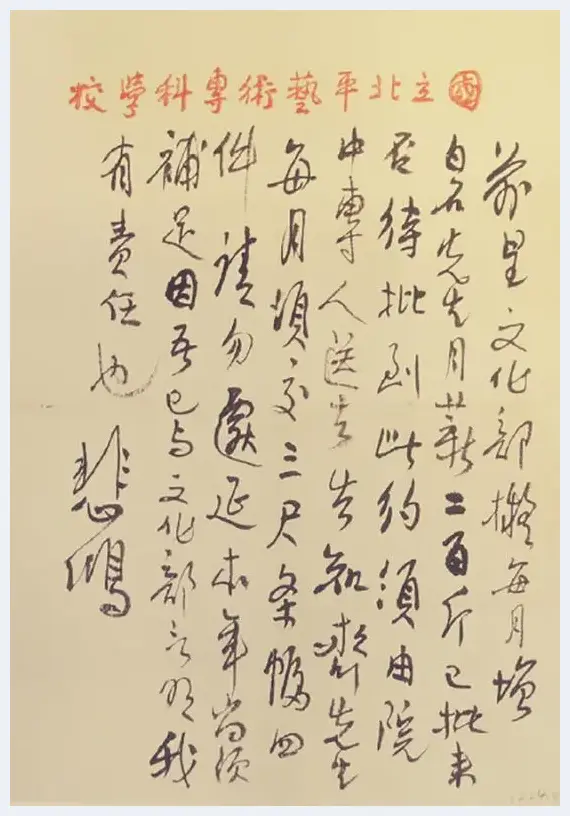 國立北平藝術專科學校
前呈文化部擬每月增
白石先生月薪二百斤已批來
否待批到此約須由院
中專人送去告知齊先生
每月須交三尺条幅四
件請勿遲延本年尚須
補足因吾已与文化部言明我
有責任也
悲鴻